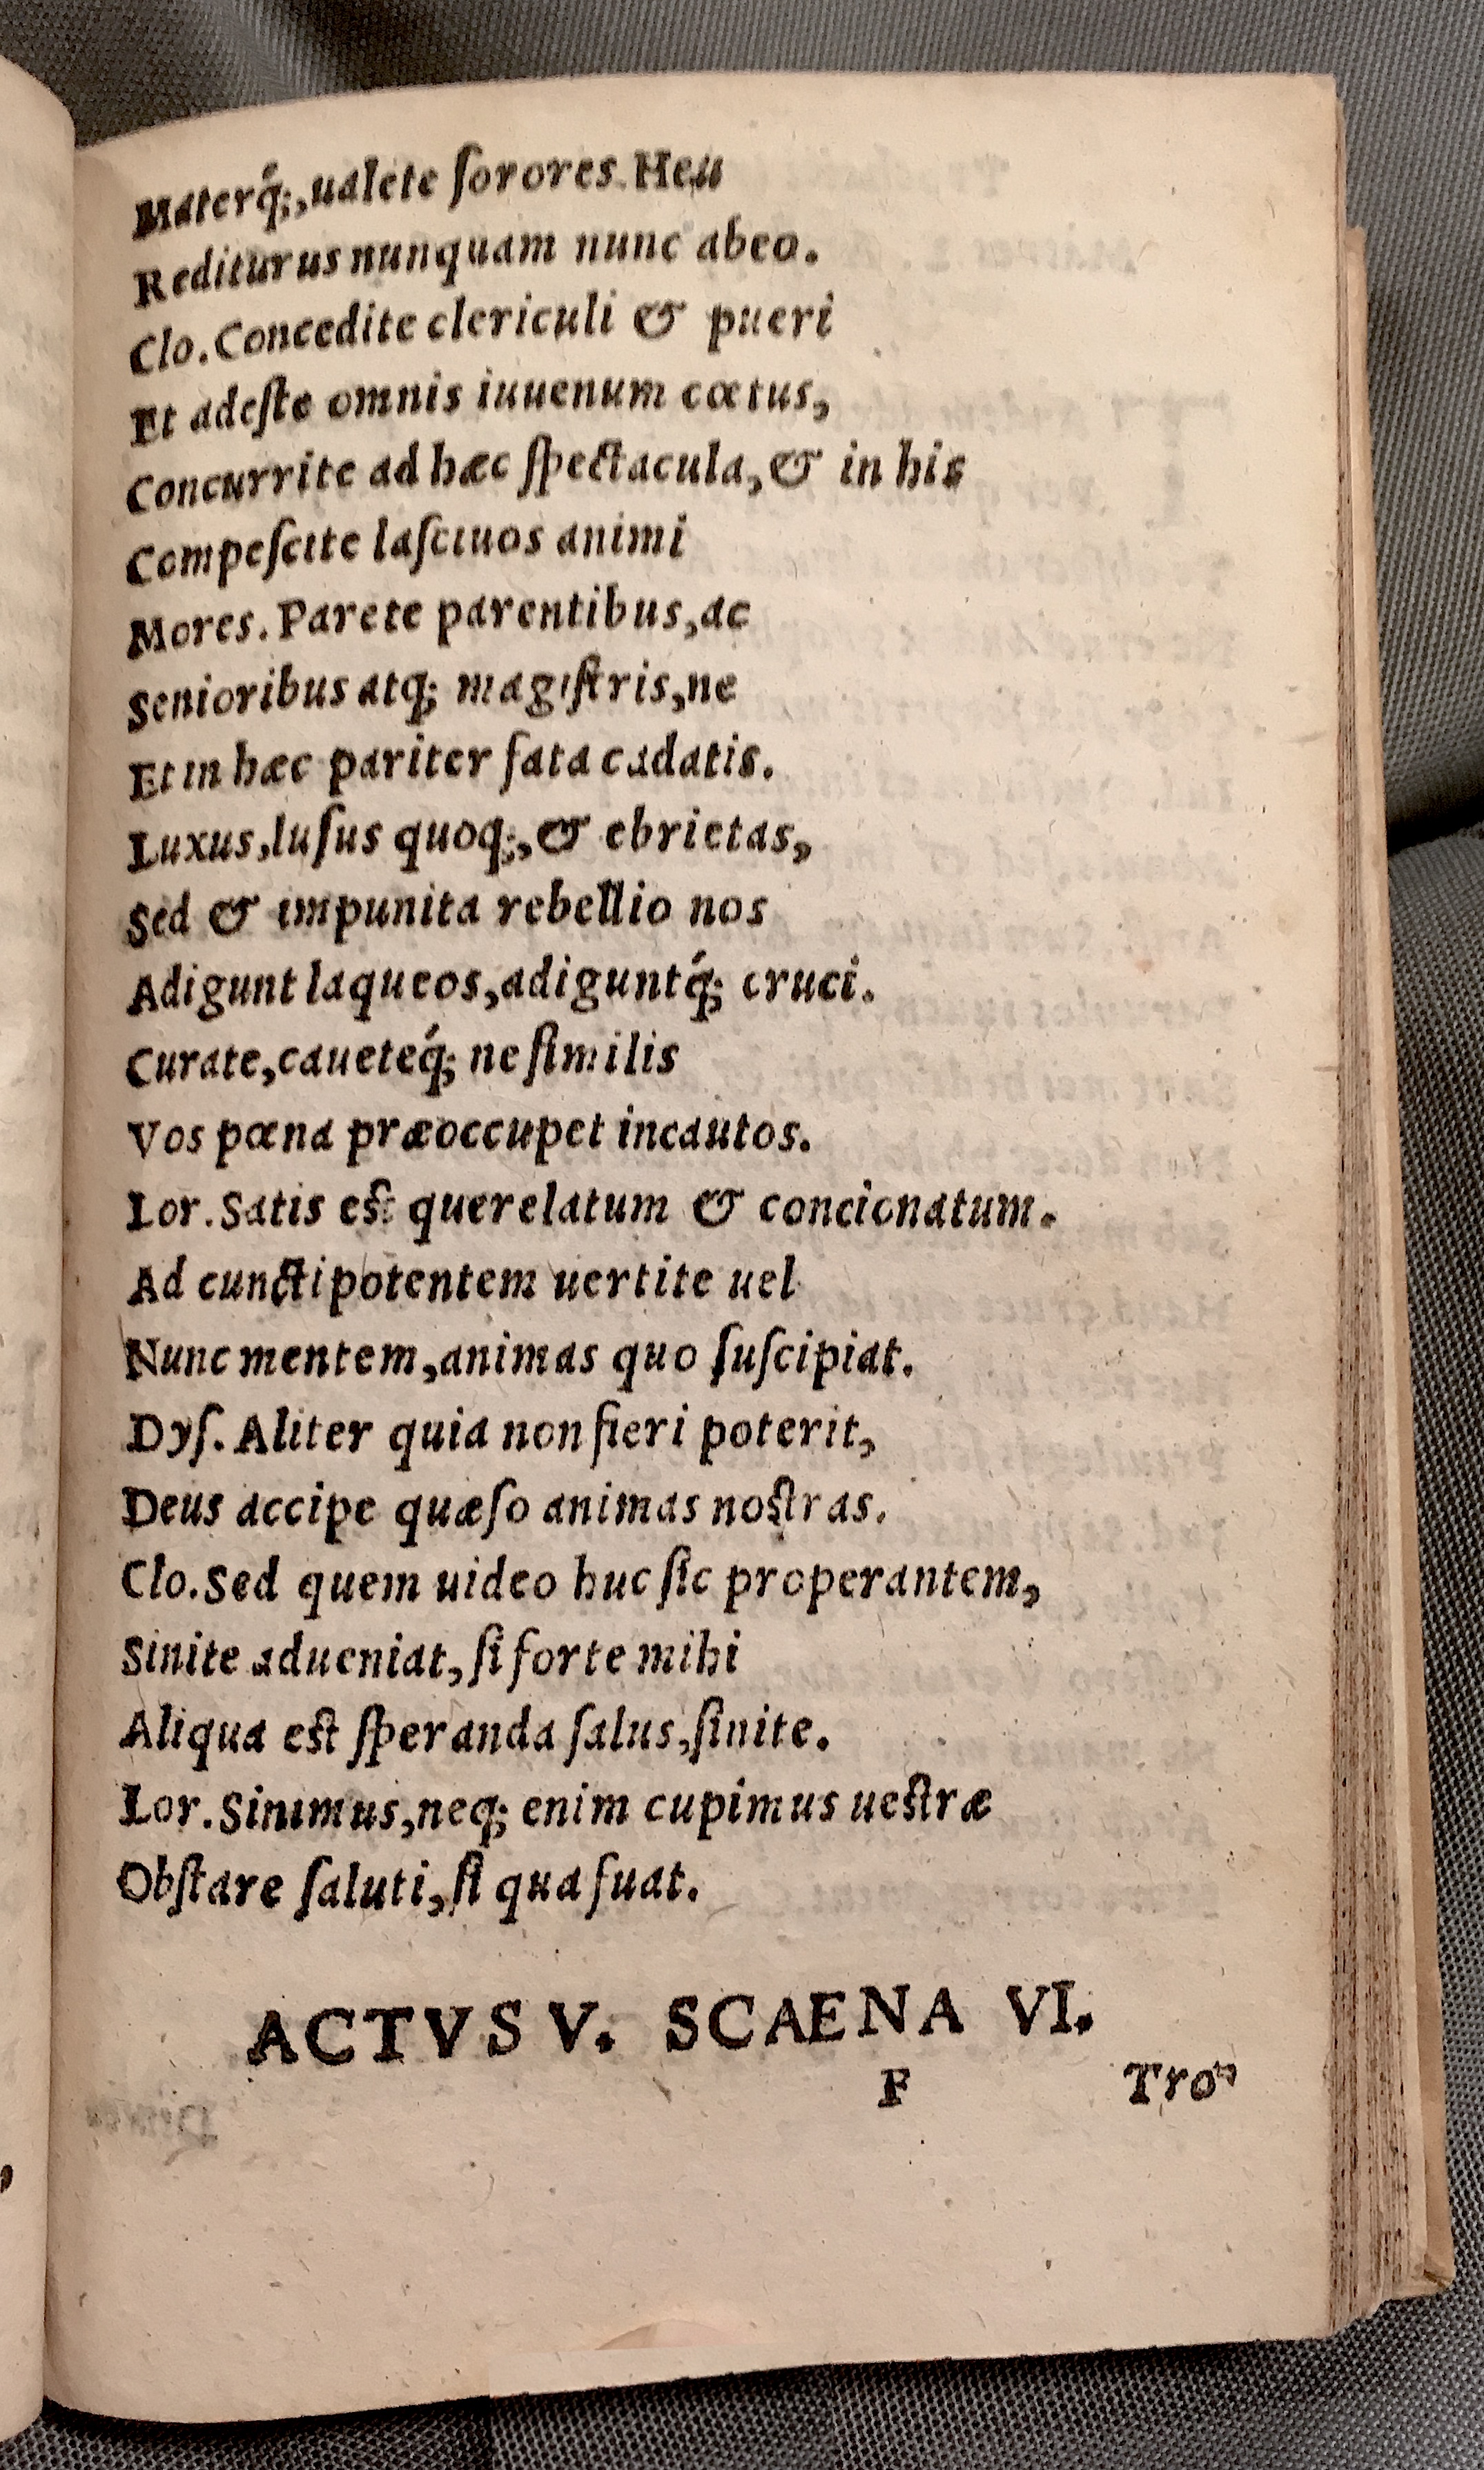 Materq́;, ualete ſorores. Heu
Rediturus nunquam nunc abeo.
Clo. Concedite clericuli & pueri
Et adeſte omnis iuuenum cœtus,
Concurrite ad hæc ſpectacula, & in his
Compeſcite laſciuos animi
Mores. Parete parentibus, ac
Senioribus atq; magiſtris, ne
Et in hæc pariter fata cadatis.
Luxus, luſus quoq;, & ebrietas,
Sed & impunita rebellio nos
Adigunt laqueos, adiguntq́; cruci.
Curate, caueteq́; ne ſimilis
Vos pœna præoccupet incautos.
Lor. Satis eſt querelatum & concionatum.
Ad cunctipotentem uertite uel
Nunc mentem, animas quo ſuſcipiat.
Dyſ. Aliter quia non fieri poterit,
Deus accipe quæſo animas noſtras.
Clo. Sed quem uideo huc ſic properantem,
Sinite adueniat, ſi forte mihi
Aliqua eſt ſperanda ſalus, ſinite.
Lor. Sinimus, neq; enim cupimus ueſtræ
Obſtare ſaluti, ſi qua fuat.
ACTVS V. SCAENA VI.
F Tro⸗